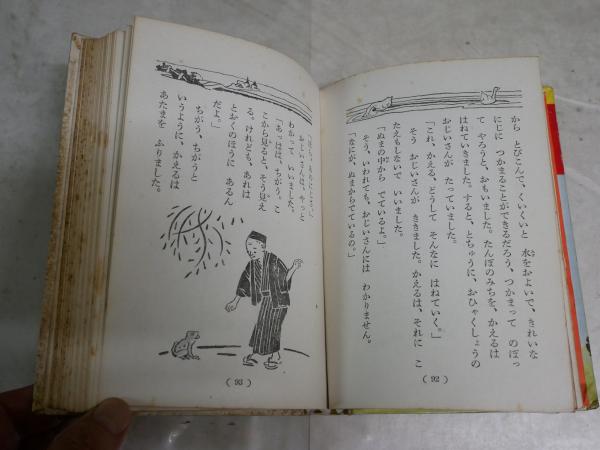 から とびこんで、くいくいと 水をおよいで、きれいな
にじに つかまることができるだろう、つかまって のぼっ
て やろうと、おもいました。たんぼのみちを、かえるは
はねていきました。すると、とちゅうに、おひゃくしょうの
おじいさんが たっていました。
「これ、かえる、どうして そんなに はねていく。」
そう おじいさんが ききました。かえるは、それに こ
たえもしないで いいました。
「ぬまの中から でているよ。」
そう、いわれても、おじいさんには わかりません。
「なにが、ぬまからでているの。」
( 92 )
おじいさんは、やっと
わかって いいました。
「あっはは、ちがう。こ
こから見ると、そう見え
る。けれども、あれは
とおくのほうに あるん
だよ。」
ちがう、ちがうと
いうように、かえるは
あたまを ふりました。
( 93 )